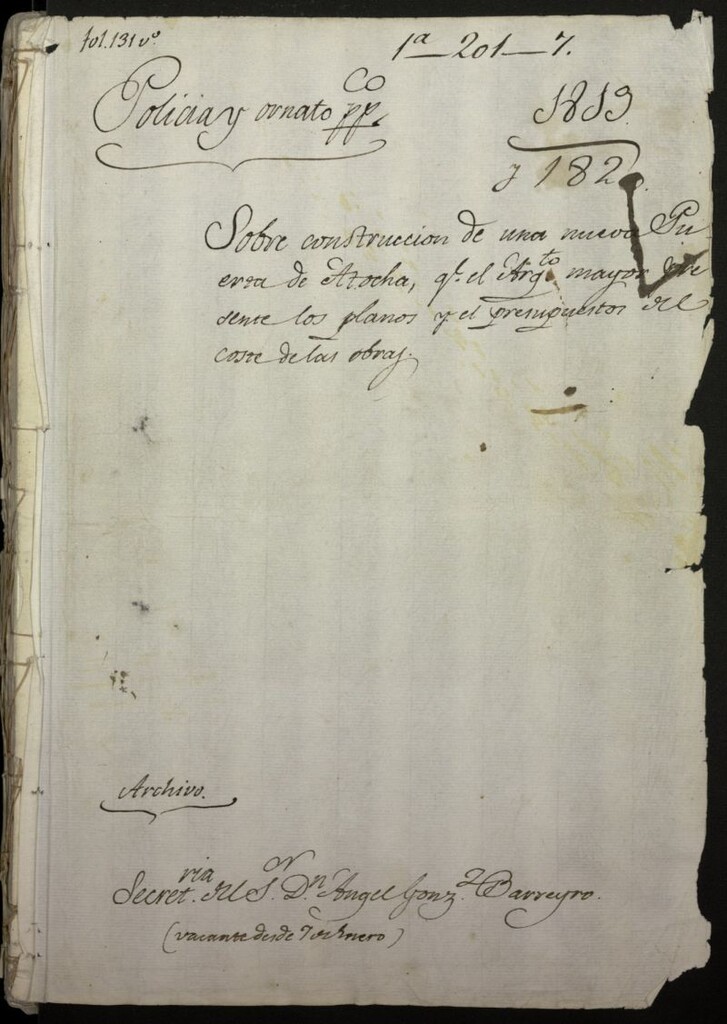 fol. 131 vº
1ª—201—7.
Policia y ornato ppco.
1819
y 182
Sobre construccion de una nueva Pu
erta de Atocha, qe. el Argto. mayor pre
sente los planos y el presupuestos del
coste de las obras.
Archivo.
Secretria. del Sor. Dn. Angel Gonzz. Barreyro.
(vacante desde 7 de Enero)